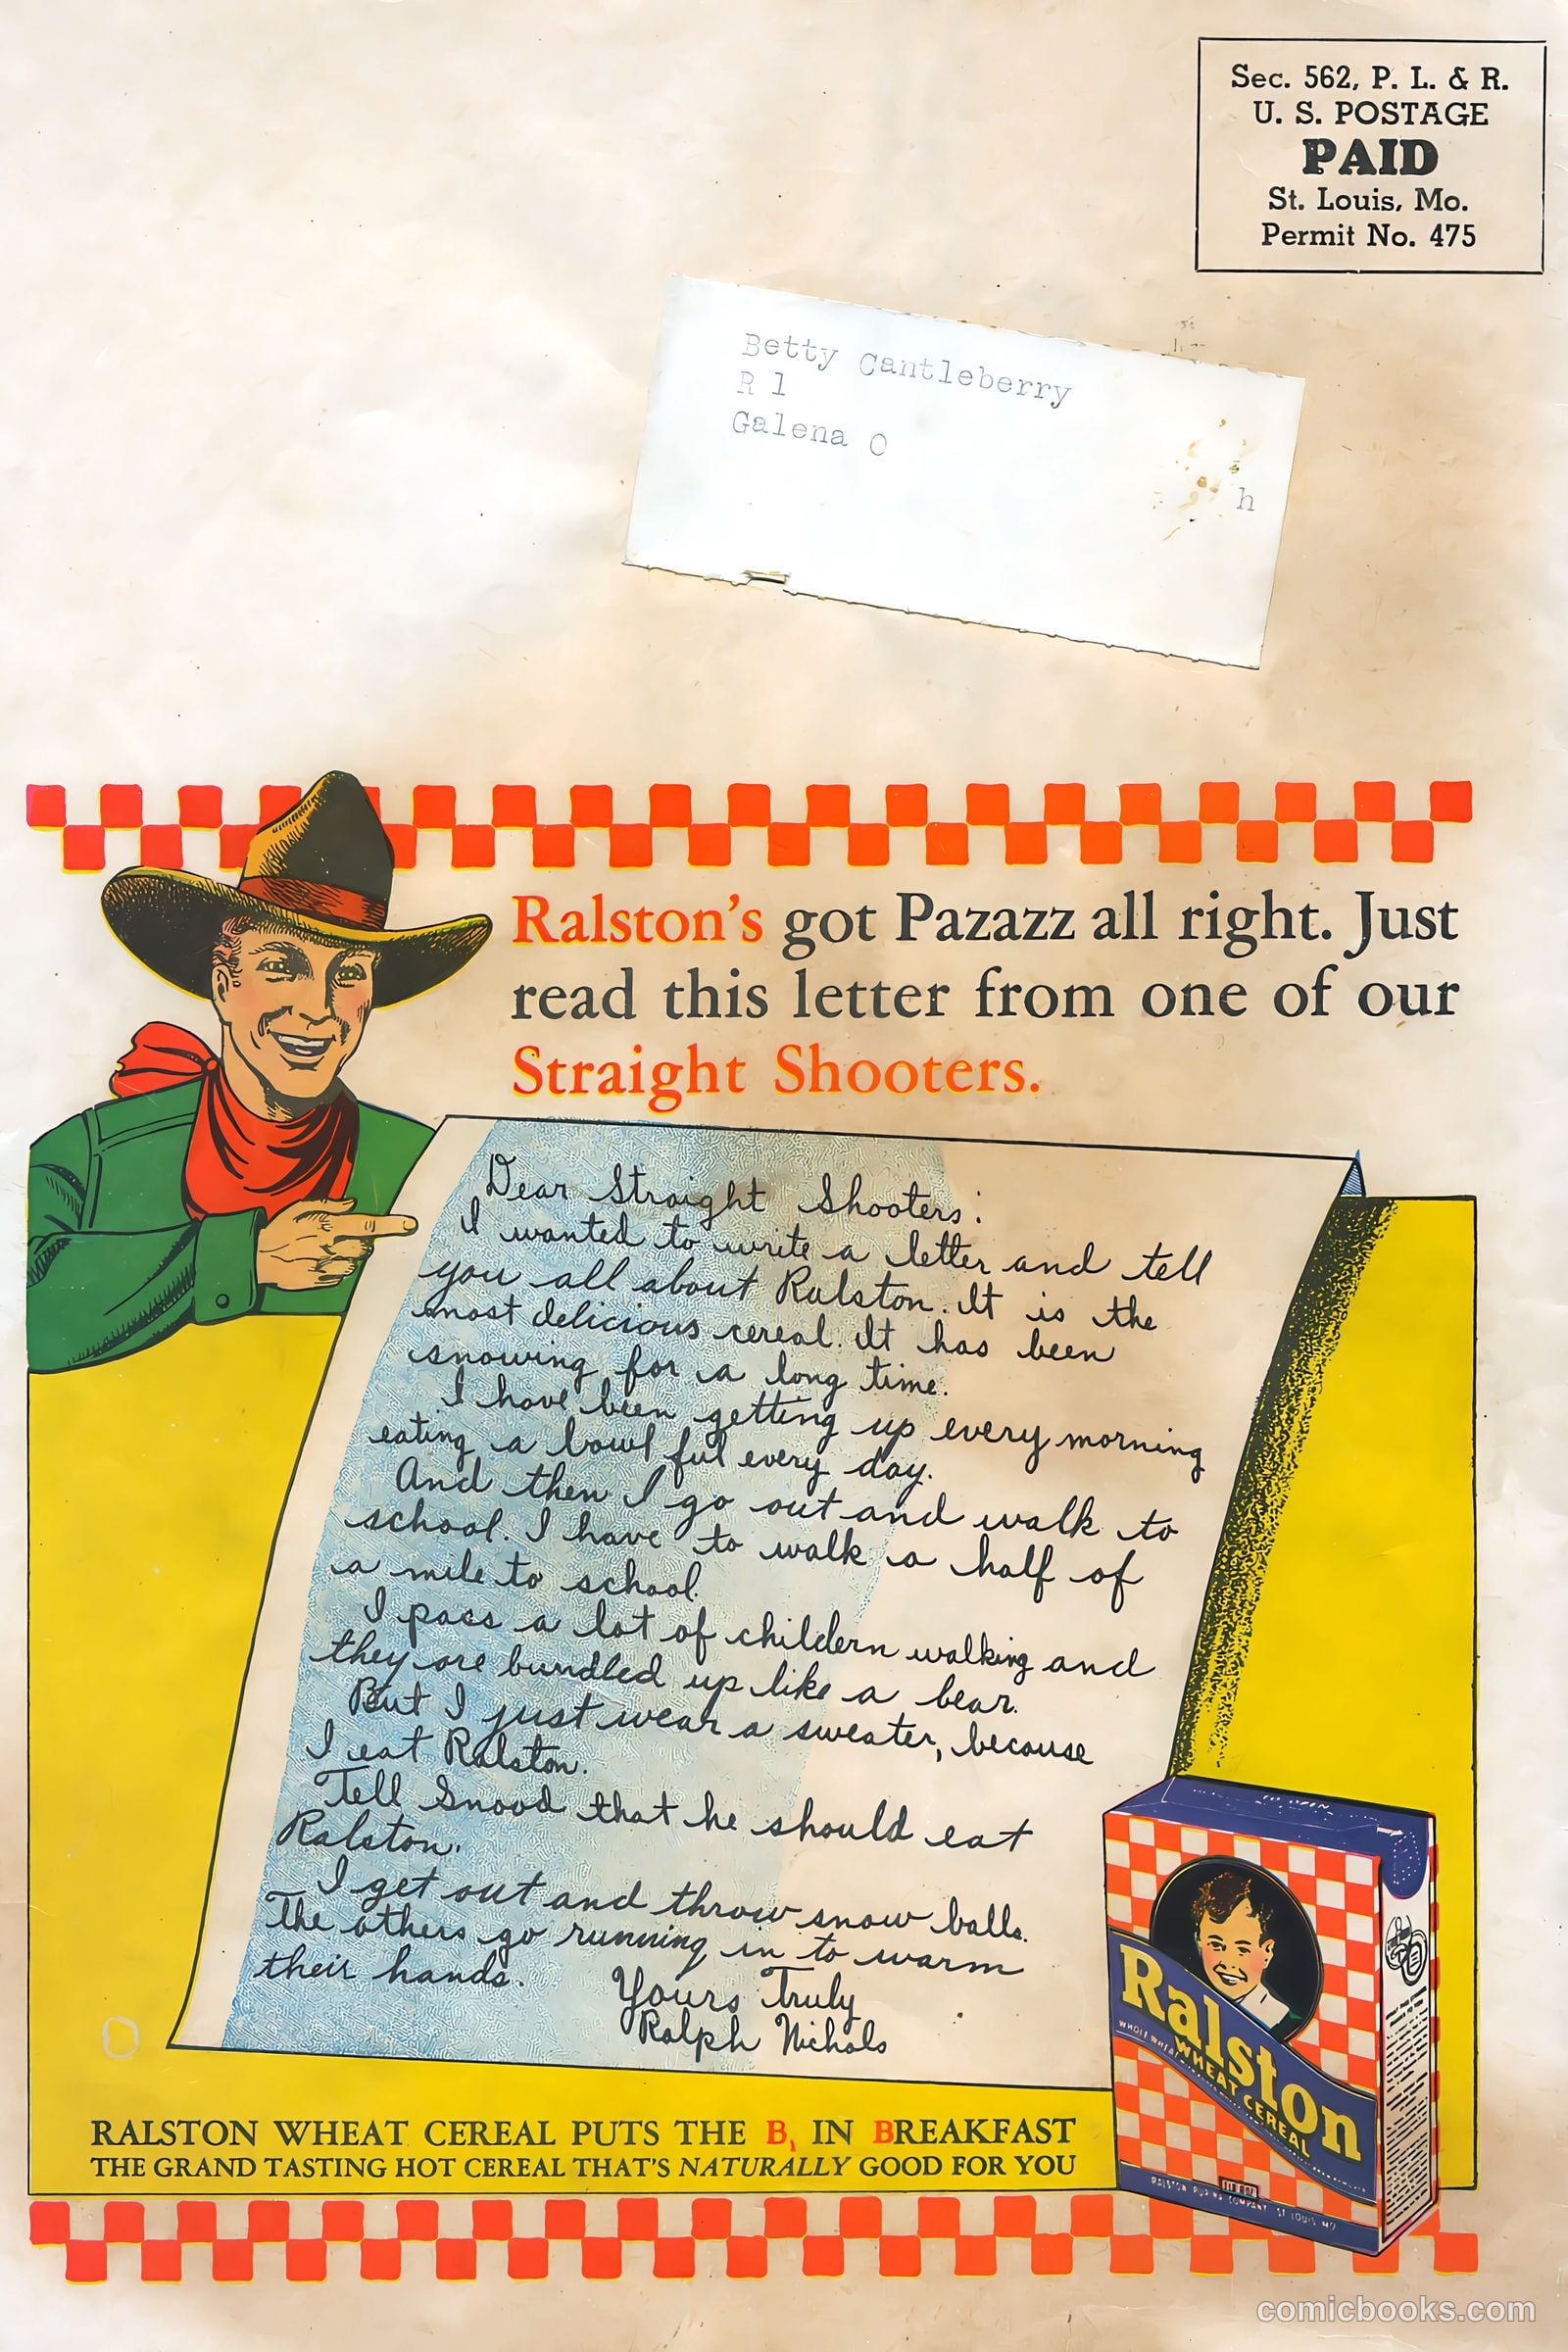 Sec. 562, P. L. & R.
U. S. POSTAGE
PAID
St. Louis, Mo.
Permit No. 475
Betty Cantleberry
R 1
Galena O
h
Ralston's got Pazazz all right. Just
read this letter from one of our
Straight Shooters.
Dear Straight Shooters:
I wanted to write a letter and tell
you all about Ralston. It is the
most delicious cereal. It has been
snowing for a long time.
I have been getting up every morning
eating a bowl ful every day.
And then I go out and walk to
school. I have to walk a half of
a mile to school.
I pass a lot of childern walking and
they are bundled up like a bear.
But I just wear a sweater, because
I eat Ralston.
Tell Snood that he should eat
Ralston.
I get out and throw snow balls.
The others go running in to warm
their hands.
Yours Truly
Ralph Nichols
TO OPEN
Ralston
WHEAT CEREAL
RALSTON PURINA COMPANY ST LOUIS MO
RALSTON WHEAT CEREAL PUTS THE B₁ IN BREAKFAST
THE GRAND TASTING HOT CEREAL THAT'S NATURALLY GOOD FOR YOU
comicbooks.com